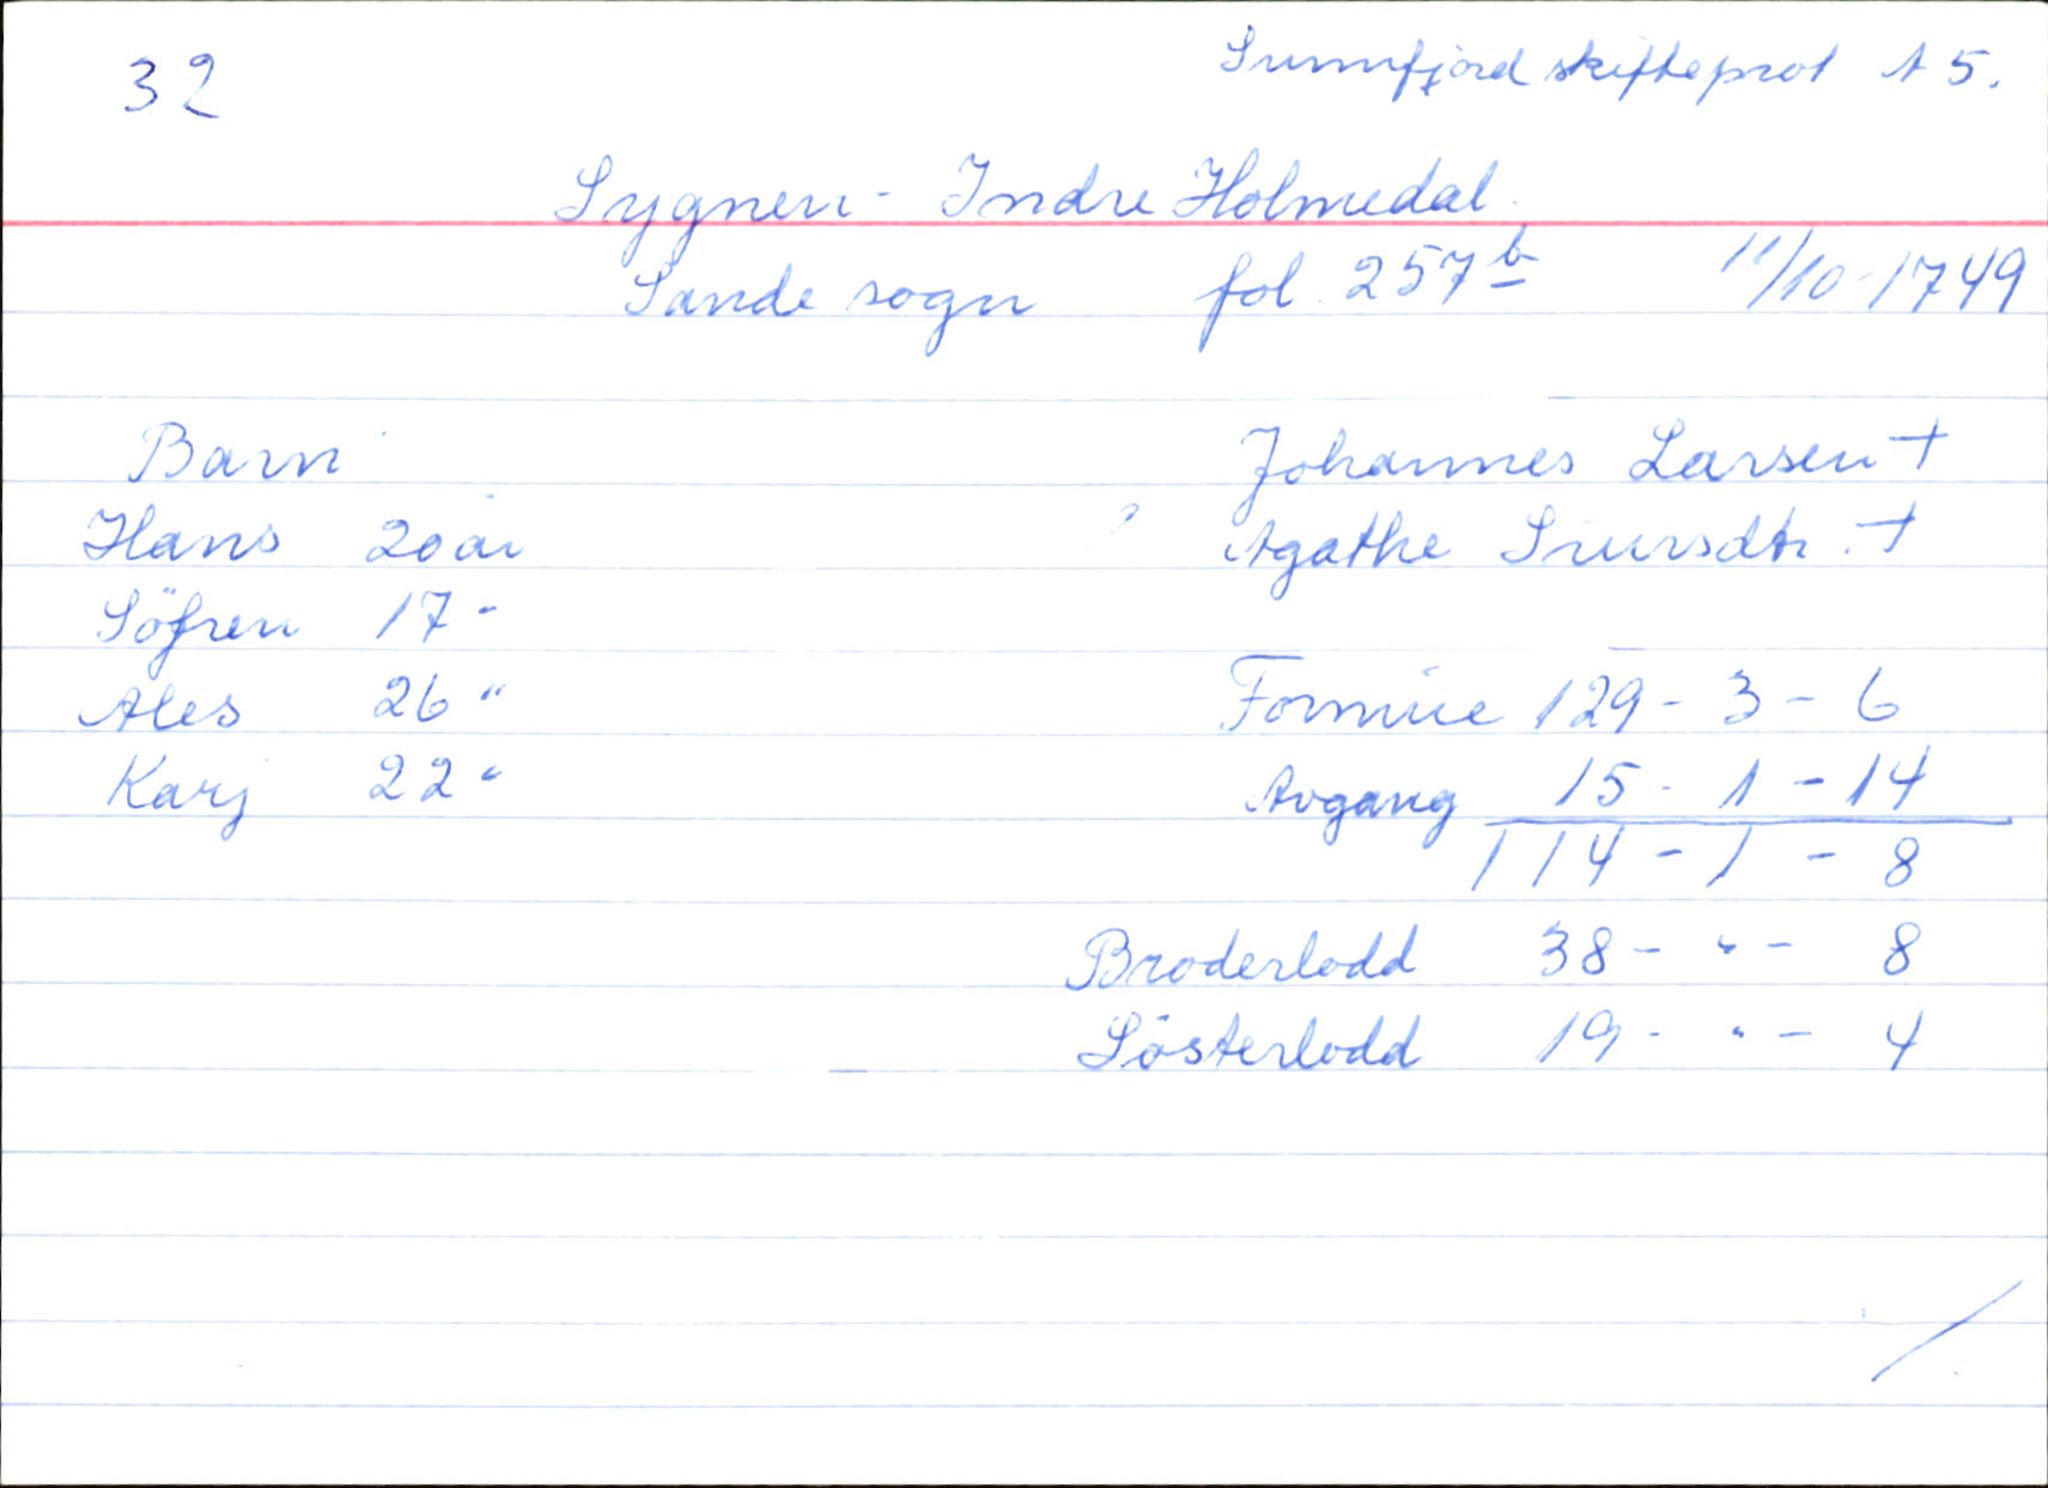 32
Sunnfjord skifteprot A 5.
Sygnen - Indre Holmedal
Sande sogn fol 257 b 11/10-1749
Barn Johannes Larsen †
Hans 20 år ? Agathe Siursdtr. †
Söfren 17 "
Ales 26 " Formue 129 - 3 - 6
Karj 22 " Avgang 15 - 1 - 14
114 - 1 - 8
Broderlodd 38 - " - 8
Sösterlodd 19 - " - 4